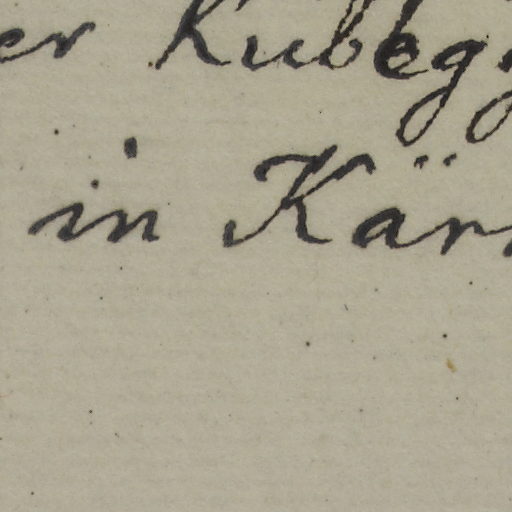 er Kubegg
in Kärn